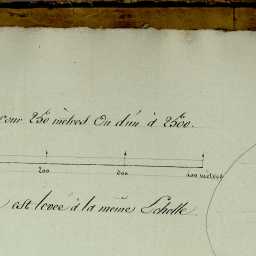 pour 250 mètres Ou d'un à 2500.
200 300 400 mètres
est levée à la même Echelle.